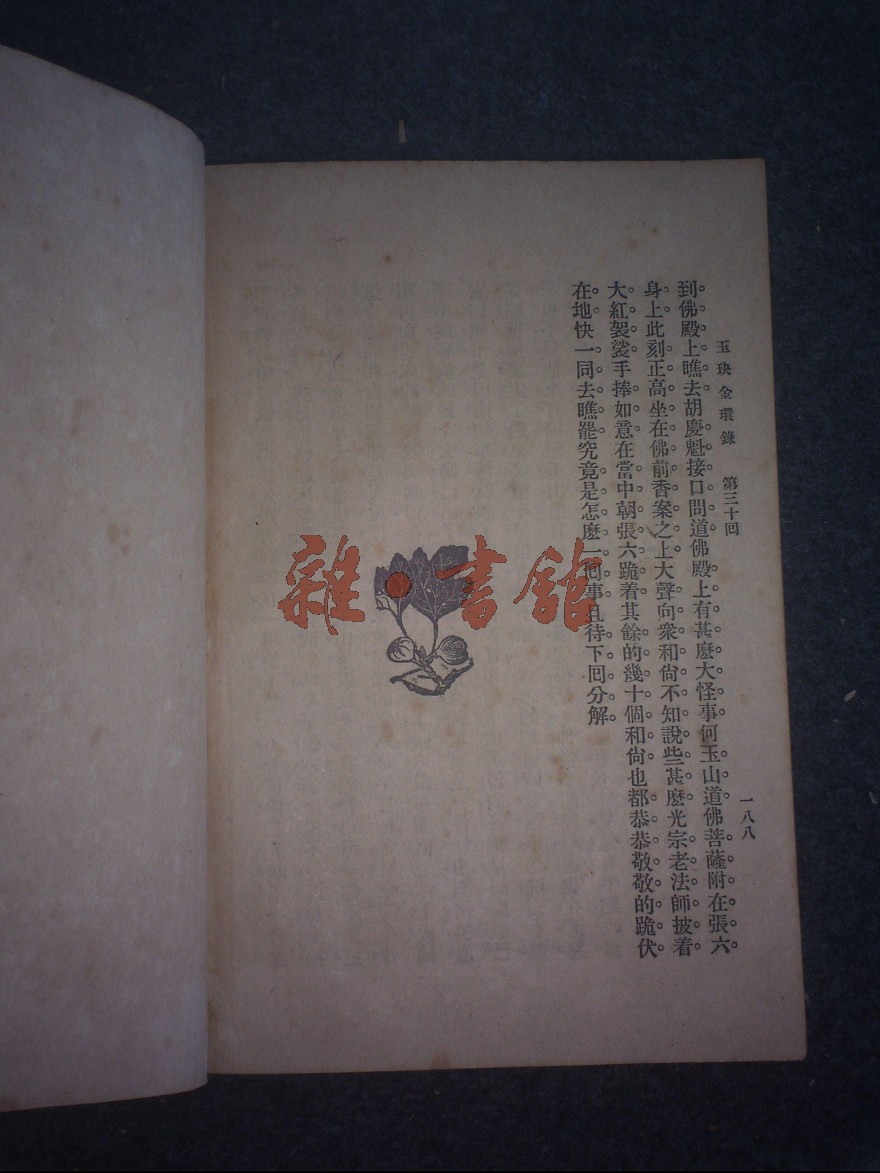 玉玦金環錄　第三十回
一八八
到佛殿上瞧去胡慶魁接口問道佛殿上有甚麽大怪事何玉山道佛菩薩附在張六
身上此刻正高坐在佛前香案之上大聲向衆和尙不知說些甚麽光宗老法師披着
大紅袈裟手捧如意在當中朝張六跪着其餘的幾十個和尙也都恭恭敬敬的跪伏
在地快一同去瞧罷究竟是怎麽一回事且待下回分解。
雜·書館